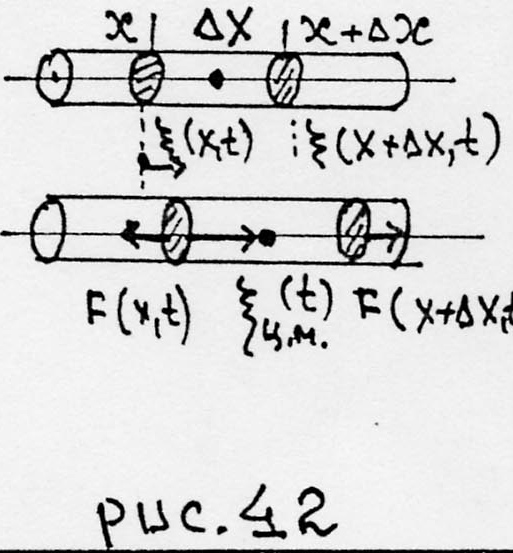 x Δx x+Δx
ξ(x,t) ξ(x+Δx,t)
F(x,t) ξц.м.(t) F(x+Δx,t
рис. 42